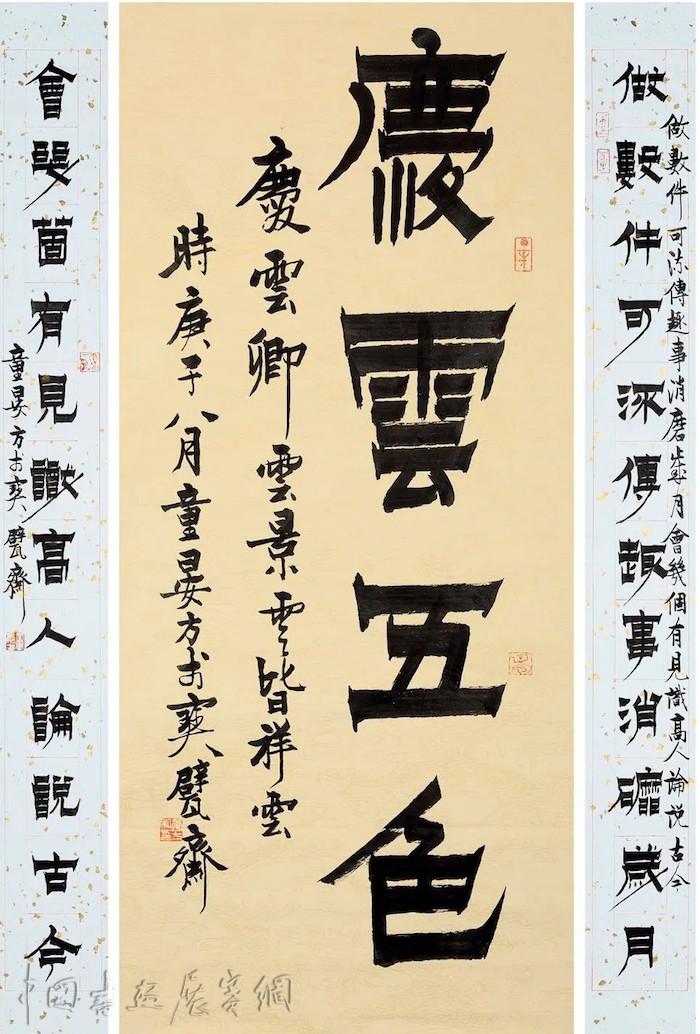 做數件可流傳趣事消磨歲月
做數件可流傳趣事消磨歲月會幾個有見識高人論說古今
慶雲五色
慶雲卿雲景雲皆祥雲
時庚子八月童晏方书寶甓齋
會幾箇有見識高人論說古今
童晏方书寶甓齋
中國書法展賽網